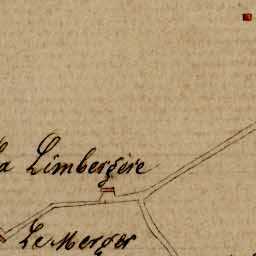 La Limbergère
Le Merger